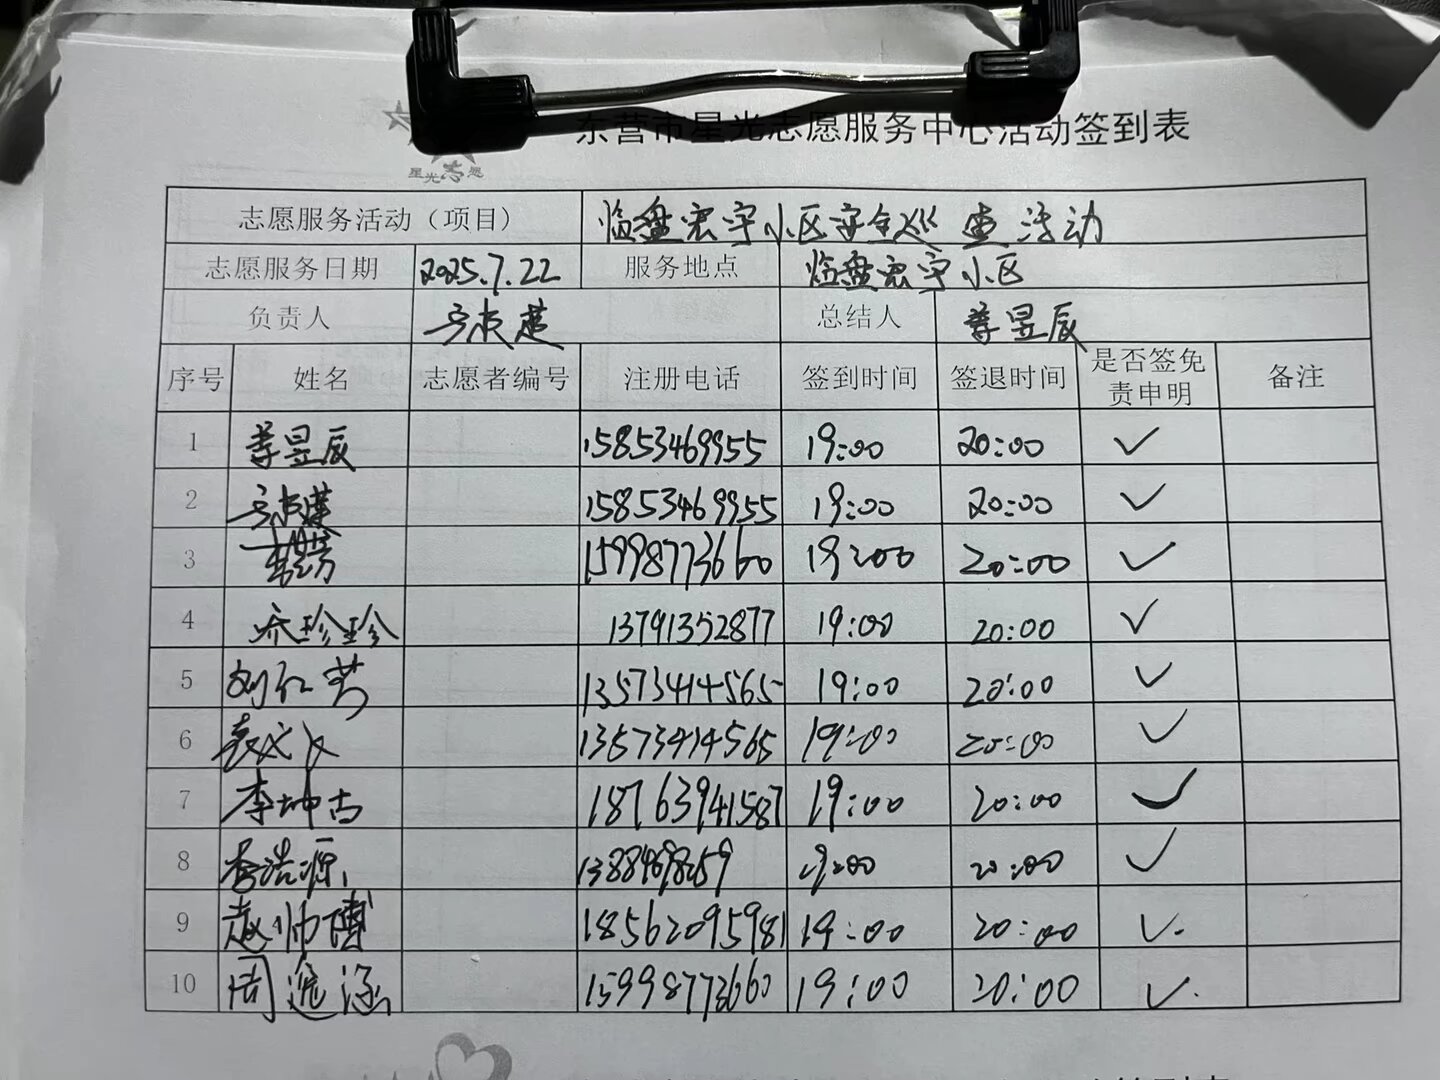 东营市星光志愿服务中心活动签到表
星光志愿
志愿服务活动（项目） 临盘宏宇小区安全巡查活动
志愿服务日期 2025.7.22 服务地点 临盘宏宇小区
负责人 总结人 昱辰
序号 姓名 志愿者编号 注册电话 签到时间 签退时间 是否签免责申明 备注
1 昱辰 15853469955 19:00 20:00 ✓
2 15853469955 19:00 20:00 ✓
3 15998773660 19:00 20:00 ✓
4 乔珍珍 13791352877 19:00 20:00 ✓
5 刘红芳 13573414565 19:00 20:00 ✓
6 袁文义 13573414565 19:00 20:00 ✓
7 李坤古 18763941587 19:00 20:00 ✓
8 李浩源 19:00 20:00 ✓
9 赵帅博 18562095981 19:00 20:00 ✓
10 周逸涵 15998773660 19:00 20:00 ✓